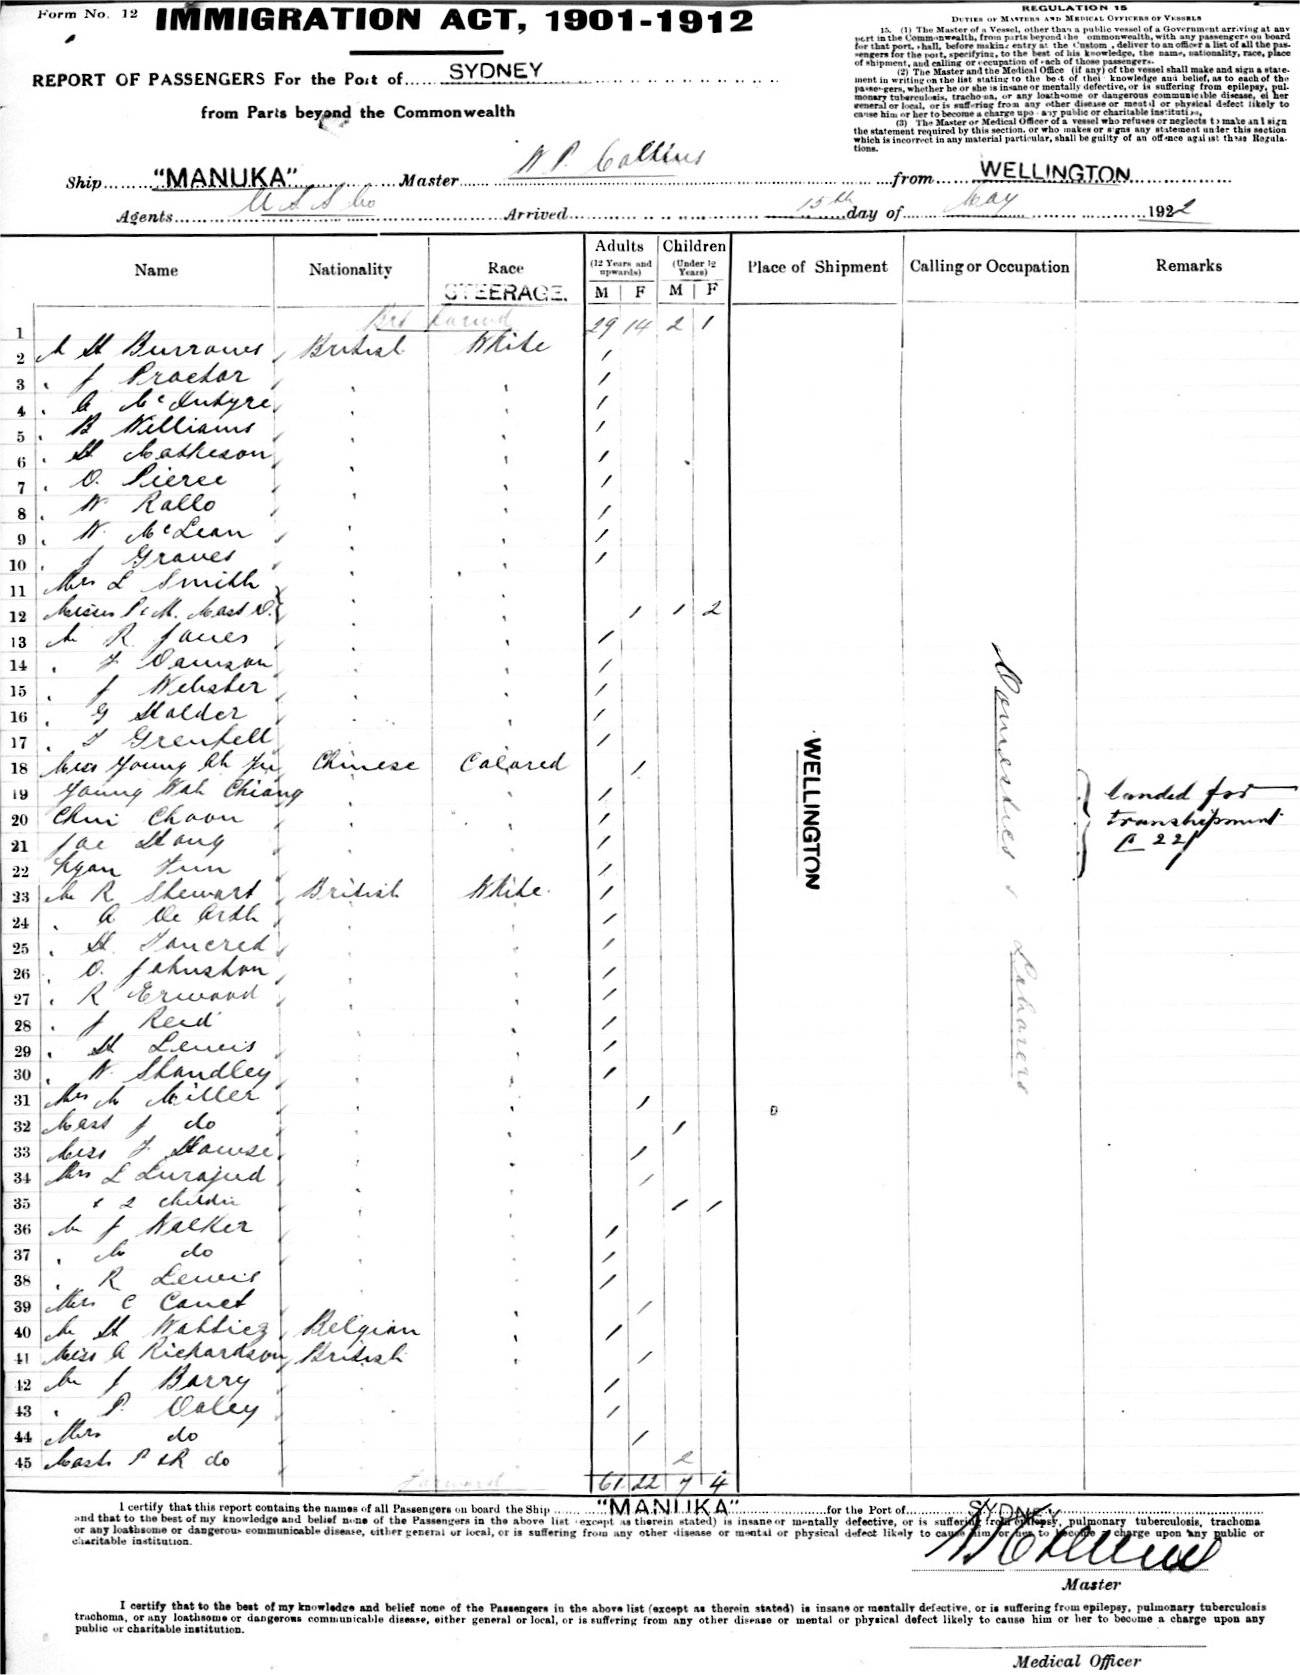 Form No. 12
IMMIGRATION ACT, 1901-1912
REPORT OF PASSENGERS For the Port of SYDNEY
from Parts beyond the Commonwealth
REGULATION 15
DUTIES OF MASTERS AND MEDICAL OFFICERS OF VESSELS
15. (1) The Master of a Vessel, other than a public vessel of a Government arriving at any
port in the Commonwealth, from parts beyond the ommonwealth, with any passengers on board
for that port, shall, before making entry at the Custom , deliver to an officer a list of all the pas-
sengers for the port, specifying, to the best of his knowledge, the name, nationality, race, place
of shipment, and calling or occupation of each of those passengers.
(2) The Master and the Medical Office (if any) of the vessel shall make and sign a state-
ment in writing on the list stating to the best of thei knowledge and belief, as to each of the
passengers, whether he or she is insane or mentally defective, or is suffering from epilepsy, pul-
monary tuberculosis, trachoma, or any loathsome or dangerous communicable disease, ei her
general or local, or is suffering from any other disease or mental or physical defect likely to
cause him or her to become a charge upon any public or charitable institution,
(3) The Master or Medical Officer of a vessel who refuses or neglects to make and sign
the statement required by this section, or who makes or signs any statement under this section
which is incorrect in any material particular, shall be guilty of an offence against these Regula-
tions.
Ship "MANUKA" Master W P. Collins from WELLINGTON
Agents U S S Co Arrived 15th day of May 1922
Name Nationality Race Adults (12 Years and upwards) M F Children (Under 12 Years) M F Place of Shipment Calling or Occupation Remarks
STEERAGE.
1 29 14 2 1
2 H Burrows British White
3 J Proctor
4 McIntyre
5 B Williams
6 H Matheson
7 O. Pierce
8 W Rallo
9 W. McLean
10 J Graves
11 Mrs L Smith
12 Misses P & M. Mast D. 1 1 2
13 R Jones
14 F Dawson
15 J Webster
16 G Halder
17 Grenfell
18 Miss Young Ah Chinese Colored
19 Young Wah Chiang
20 Chui Choon
21 Joe Hong
22
23 R Stewart British White
24 A De Arth
25 H. Tancred
26 O. Johnston
27 R Erwood
28 J Reid
29 H Lewis
30 W. Standley
31 Mrs M Miller
32 Mast J do
33 Miss F
34 Mrs L
35 & 2 children
36 J Walker
37 do
38 R Lewis
39 Mrs C
40 H Belgian
41 Miss A Richardson British
42 J Barry
43 P. Daley
44 Mrs do
45 Mast P & R do 2
WELLINGTON
Domestics & Laborers
landed for
transhipment
61 22 7 4
I certify that this report contains the names of all Passengers on board the Ship "MANUKA" for the Port of SYDNEY
and that to the best of my knowledge and belief none of the Passengers in the above list (except as therein stated) is insane or mentally defective, or is suffering from epilepsy, pulmonary tuberculosis, trachoma
or any loathsome or dangerous communicable disease, either general or local, or is suffering from any other disease or mental or physical defect likely to cause him or her to become a charge upon any public or
charitable institution.
Master
I certify that to the best of my knowledge and belief none of the Passengers in the above list (except as therein stated) is insane or mentally defective, or is suffering from epilepsy, pulmonary tuberculosis
trachoma, or any loathsome or dangerous communicable disease, either general or local, or is suffering from any other disease or mental or physical defect likely to cause him or her to become a charge upon any
public or charitable institution.
Medical Officer